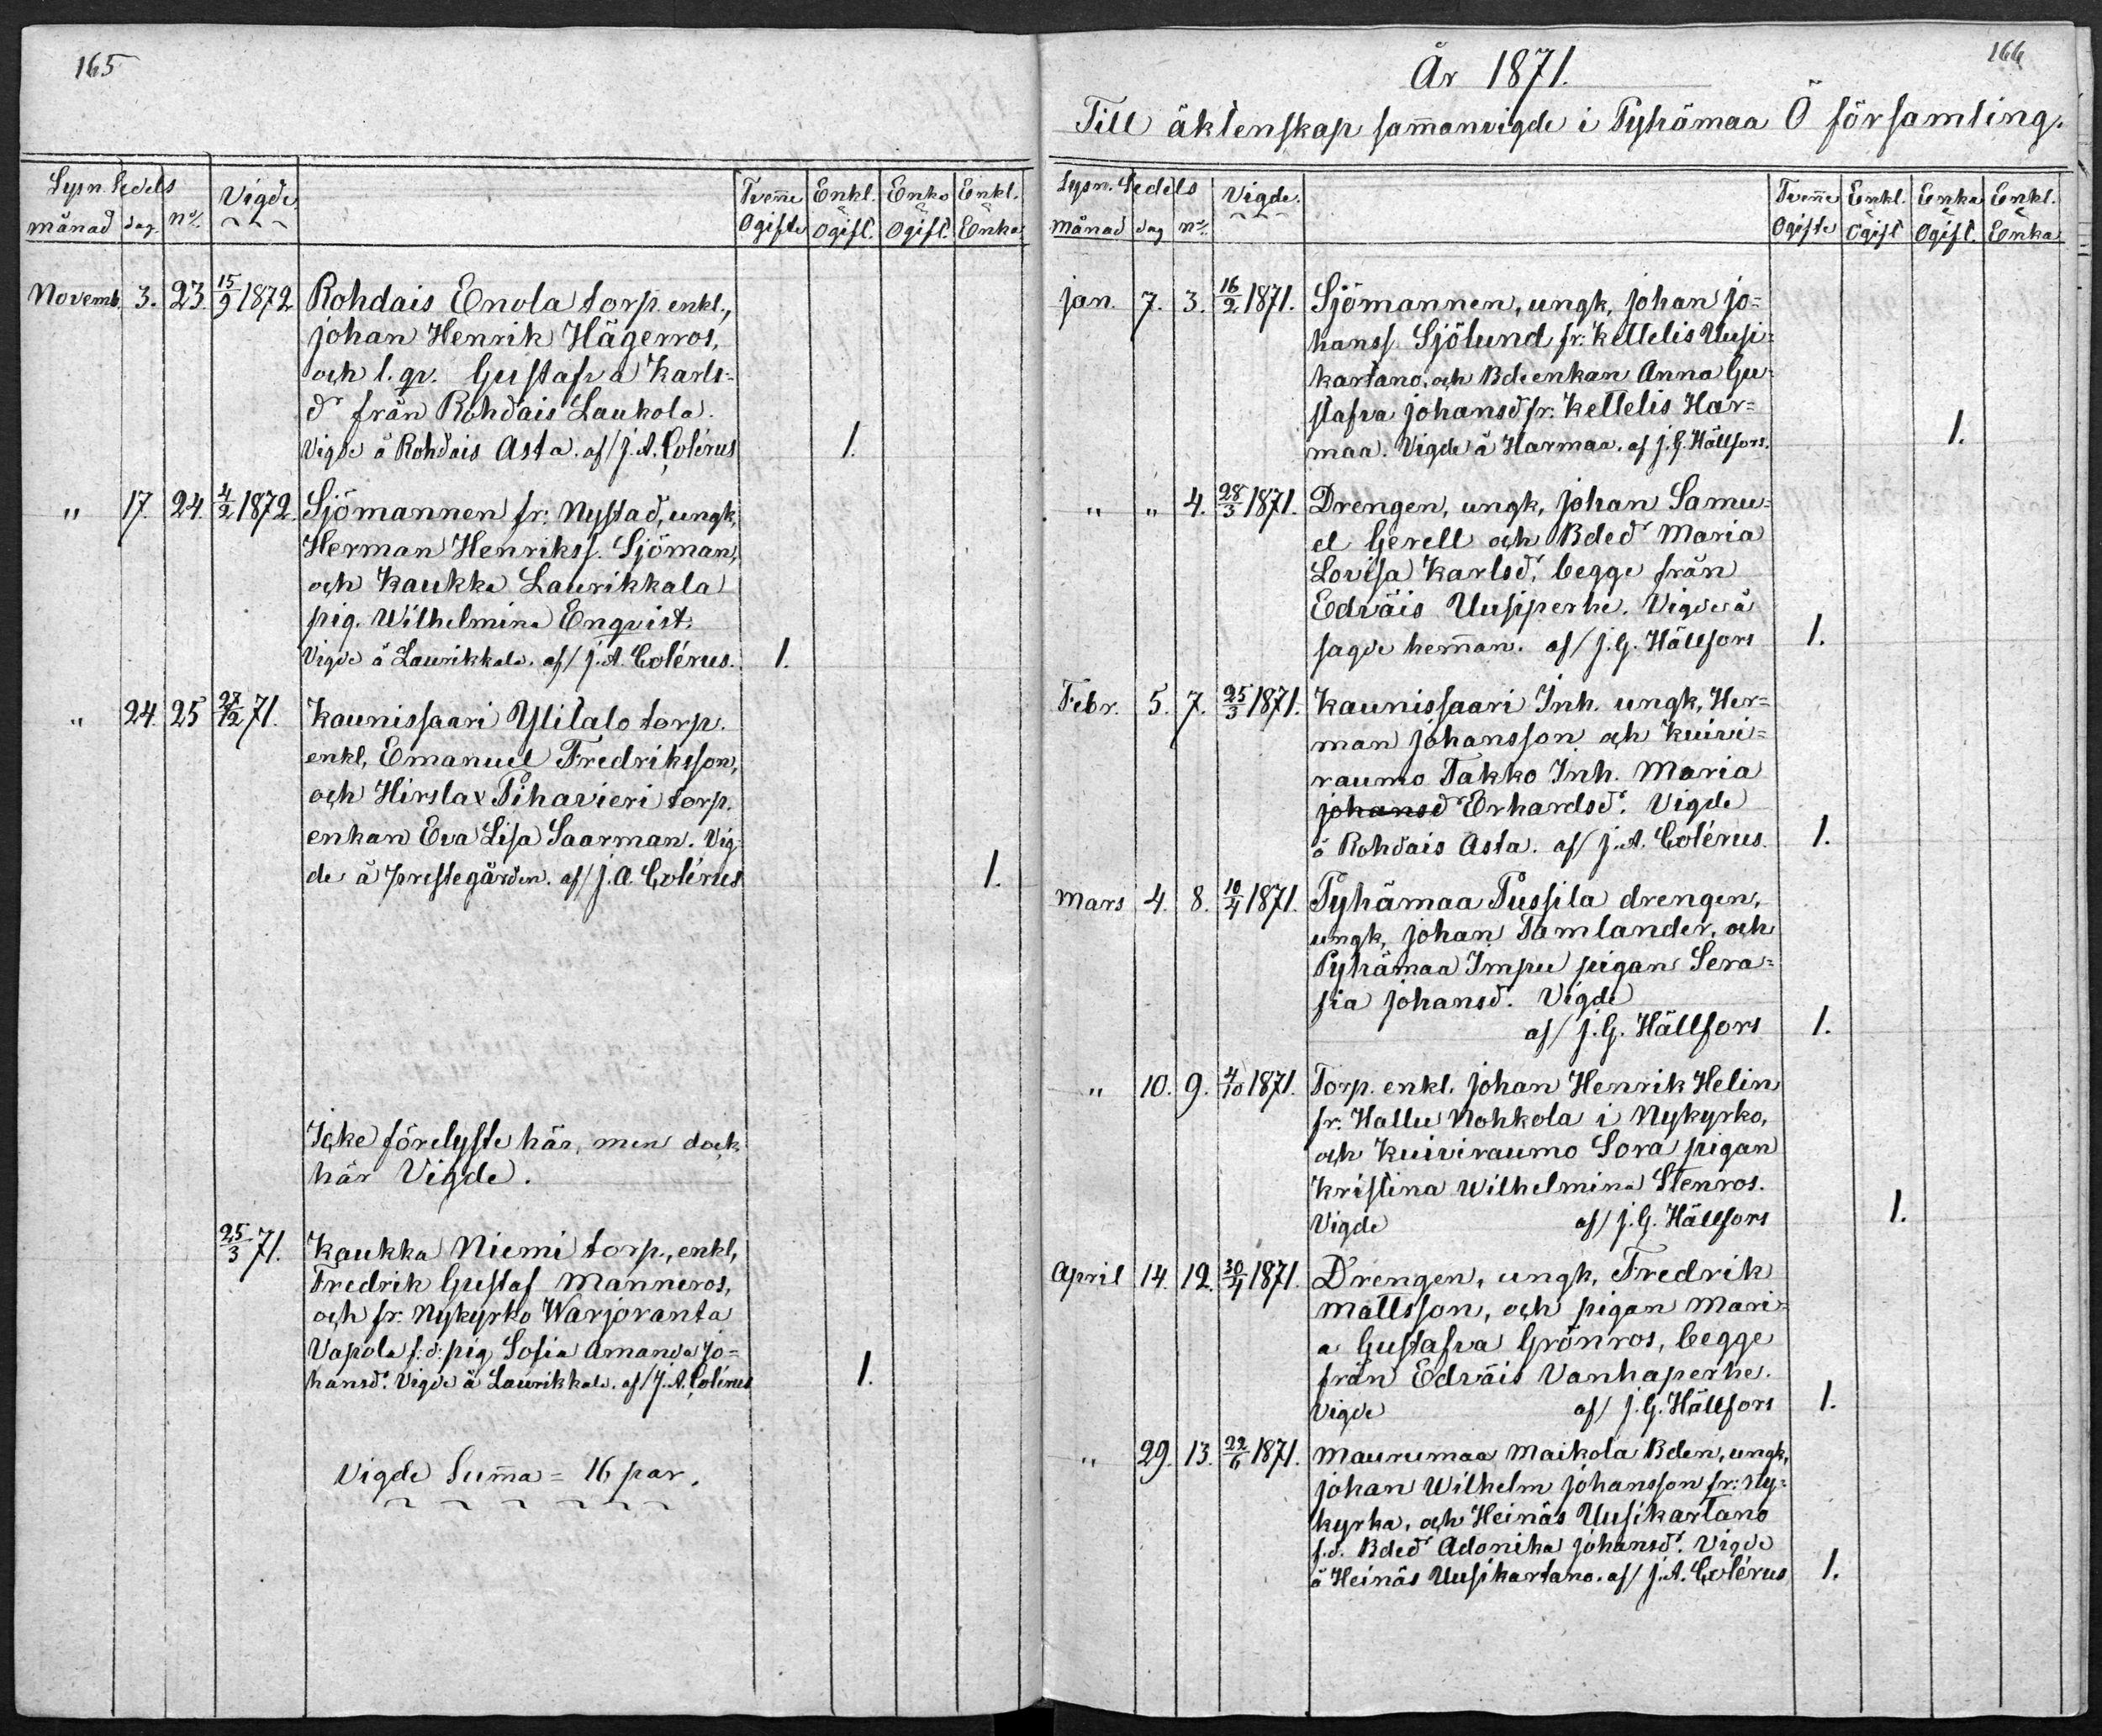 165
Lysn. Sedels
månad dag. nº. Vigde Tvenne Ogifte Enkl. Ogift. Enka Ogift. Enkl. Enka
Novemb. 3. 23. 15/9 1872 Rohdais Enola torp. enkl.,
Johan Henrik Hägerros,
och l. qv. Gustafva Karls=
d från Rohdais Laukola.
Vigde å Rohdais Asta. af/ J. A. Colérus 1.
" 17. 24. 4/2 1872. Sjömannen fr: Nystad, ungk,
Herman Henrikss. Sjöman,
och Kaukka Laurikkala
pig. Wilhelmina Enqvist.
Vigde å Laurikkala. af/ J. A. Colérus. 1.
" 24. 25 27/12 71. Kaunissaari Ylitalo torp.
enkl, Emanuel Fredriksson,
och Hirslax Pihavieri torp.
enkan Eva Lisa Saarman. Vig=
de å prestegården. af/ J. A. Colérus 1.
Icke förelyste här, men dock
här Vigde.
25/3 71. Kaukka Niemi torp., enkl,
Fredrik Gustaf Manneros,
och fr: Nykyrko Warjoranta
Vapola f: d: pig Sofia Amanda Jo=
hansd. Vigde å Laurikkala. af/ J. A. Colérus 1.
Vigde Summa = 16 par.
166
År 1871.
Till äktenskap sammanvigde i Pyhämaa Ö församling.
Lysn. Sedels
månad dag nº. Vigde. Tvenne Ogifte Enkl. Ogift Enka Ogift. Enkl. Enka
Jan. 7. 3. 16/2 1871. Sjömannen, ungk, Johan Jo=
hanss. Sjölund fr: Kettelis Uusi=
kartano, och Bdeenkan Anna Gu=
stafva Johansd fr: Kettelis Har=
maa. Vigde å Harmaa. af J. G. Hällfors. 1.
" " 4. 28/3 1871. Drengen, ungk, Johan Samu=
el Gerell och Bded Maria
Lovisa Karlsd, begge från
Edväis Uusiperhe. Vigde å
sagde hemman. af/ J. G. Hällfors 1.
Febr. 5. 7. 25/3 1871. Kaunissaari Inh. ungk, Her=
man Johansson och Kuivi=
raumo Takko Inh. Maria
Johansd Erhardsd. Vigde
å Rohdais Asta. af/ J. A. Colérus. 1.
Mars 4. 8. 10/4 1871. Pyhämaa Pussila drengen,
ungk, Johan Tamlander, och
Pyhämaa Impu pigan Sera=
fia Johansd. Vigde
af/ J. G. Hällfors 1.
" 10. 9. 4/10 1871. Torp. enkl. Johan Henrik Helin
fr: Hallu Nohkola i Nykyrko,
och Kuiviraumo Sora pigan
Kristina Wilhelmina Stenros.
Vigde af/ J. G. Hällfors 1.
April 14. 12. 30/4 1871. Drengen, ungk, Fredrik
Mattsson, och pigan Mari=
a Gustafva Grönros, begge
från Edväis Vanhaperhe.
Vigde af/ J. G. Hällfors 1.
" 29. 13. 22/6 1871. Maurumaa Maikola Bden, ungk,
Johan Wilhelm Johansson fr: Ny=
kyrka, och Heinäs Uusikartano
f. d. Bded Adonika Johansd. Vigde
å Heinäs Uusikartano. af/ J. A. Colérus 1.